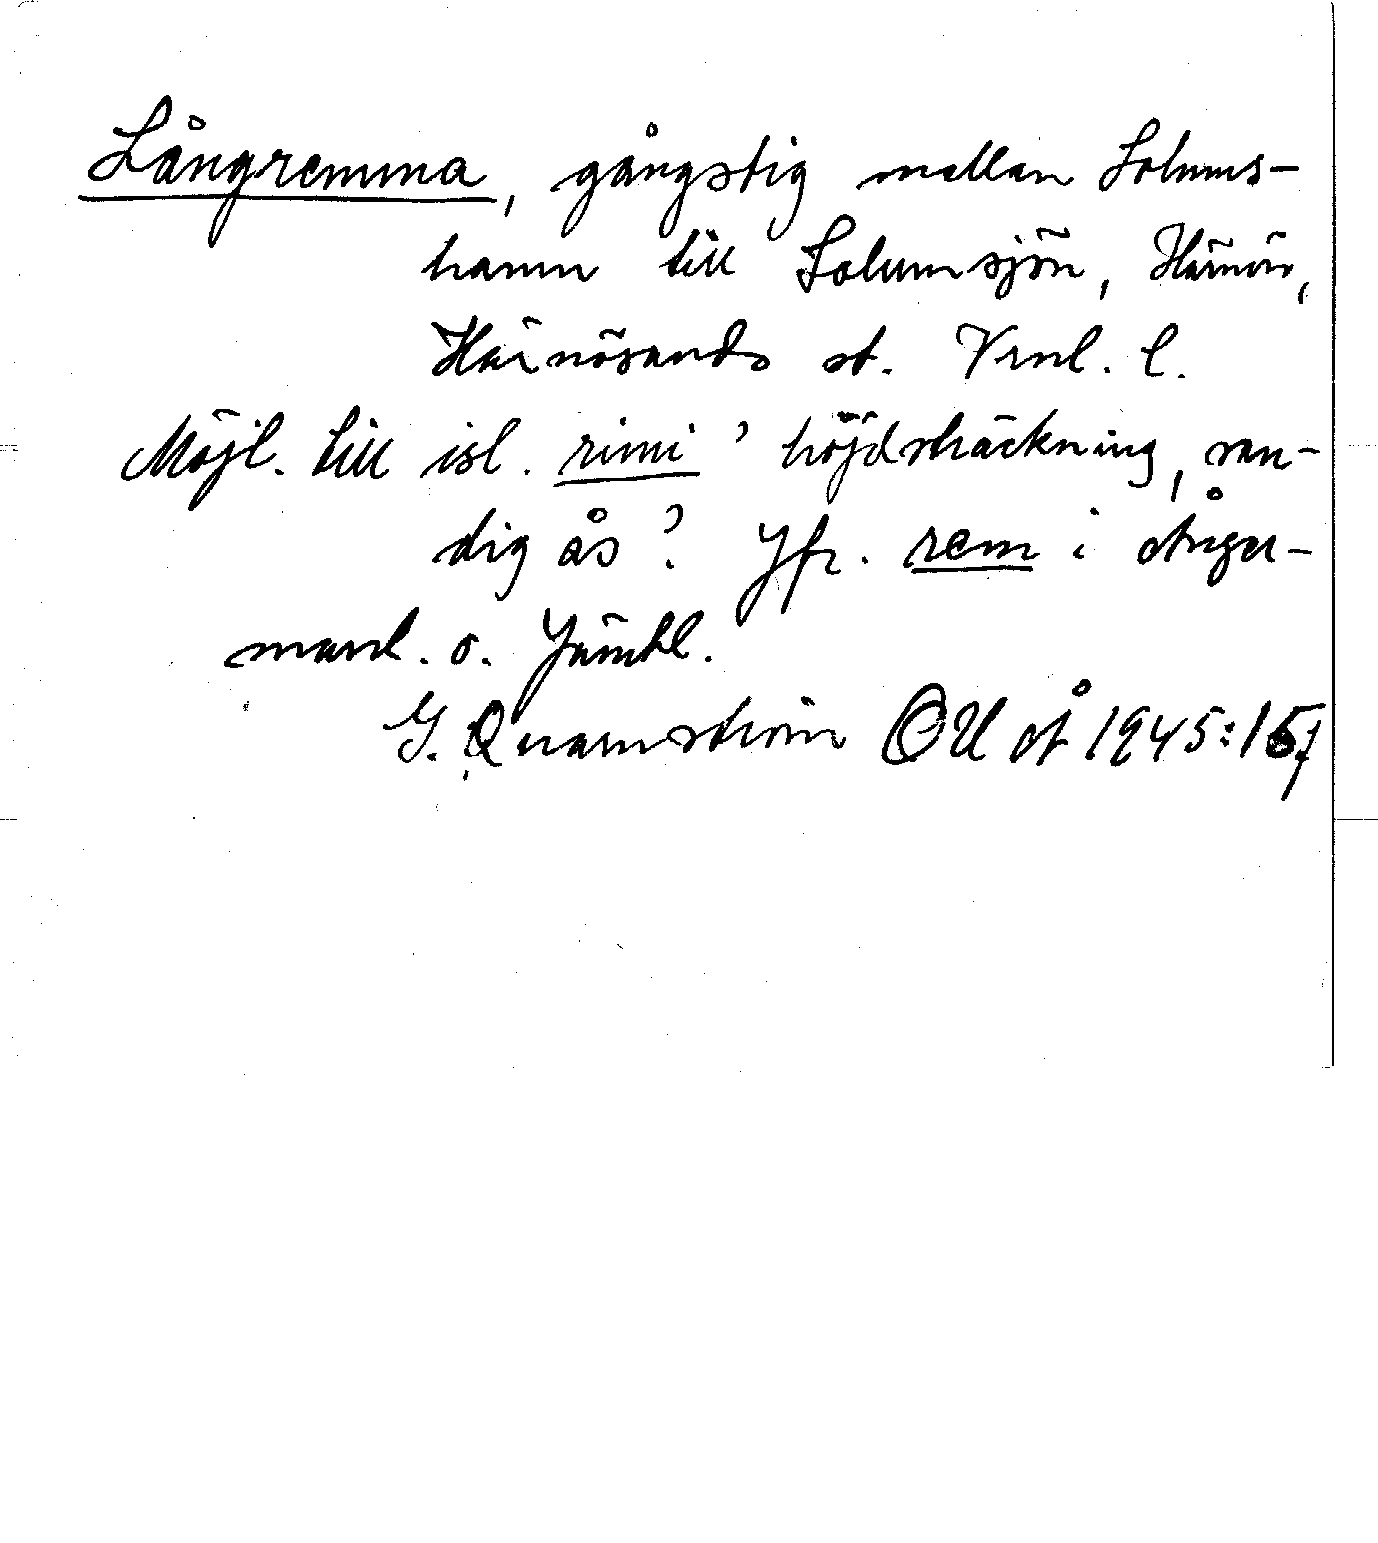 Långremma, gångstig mellan Solums-
hamn till Solumsjön, Härnön,
Härnösands st. Vrnl. l.
Möjl. till isl. rimi ’höjdsträckning, san-
dig ås’? Jfr. rem i Ånger-
manl. o. Jämtl.
G. Quarnström OUÅ 1945: